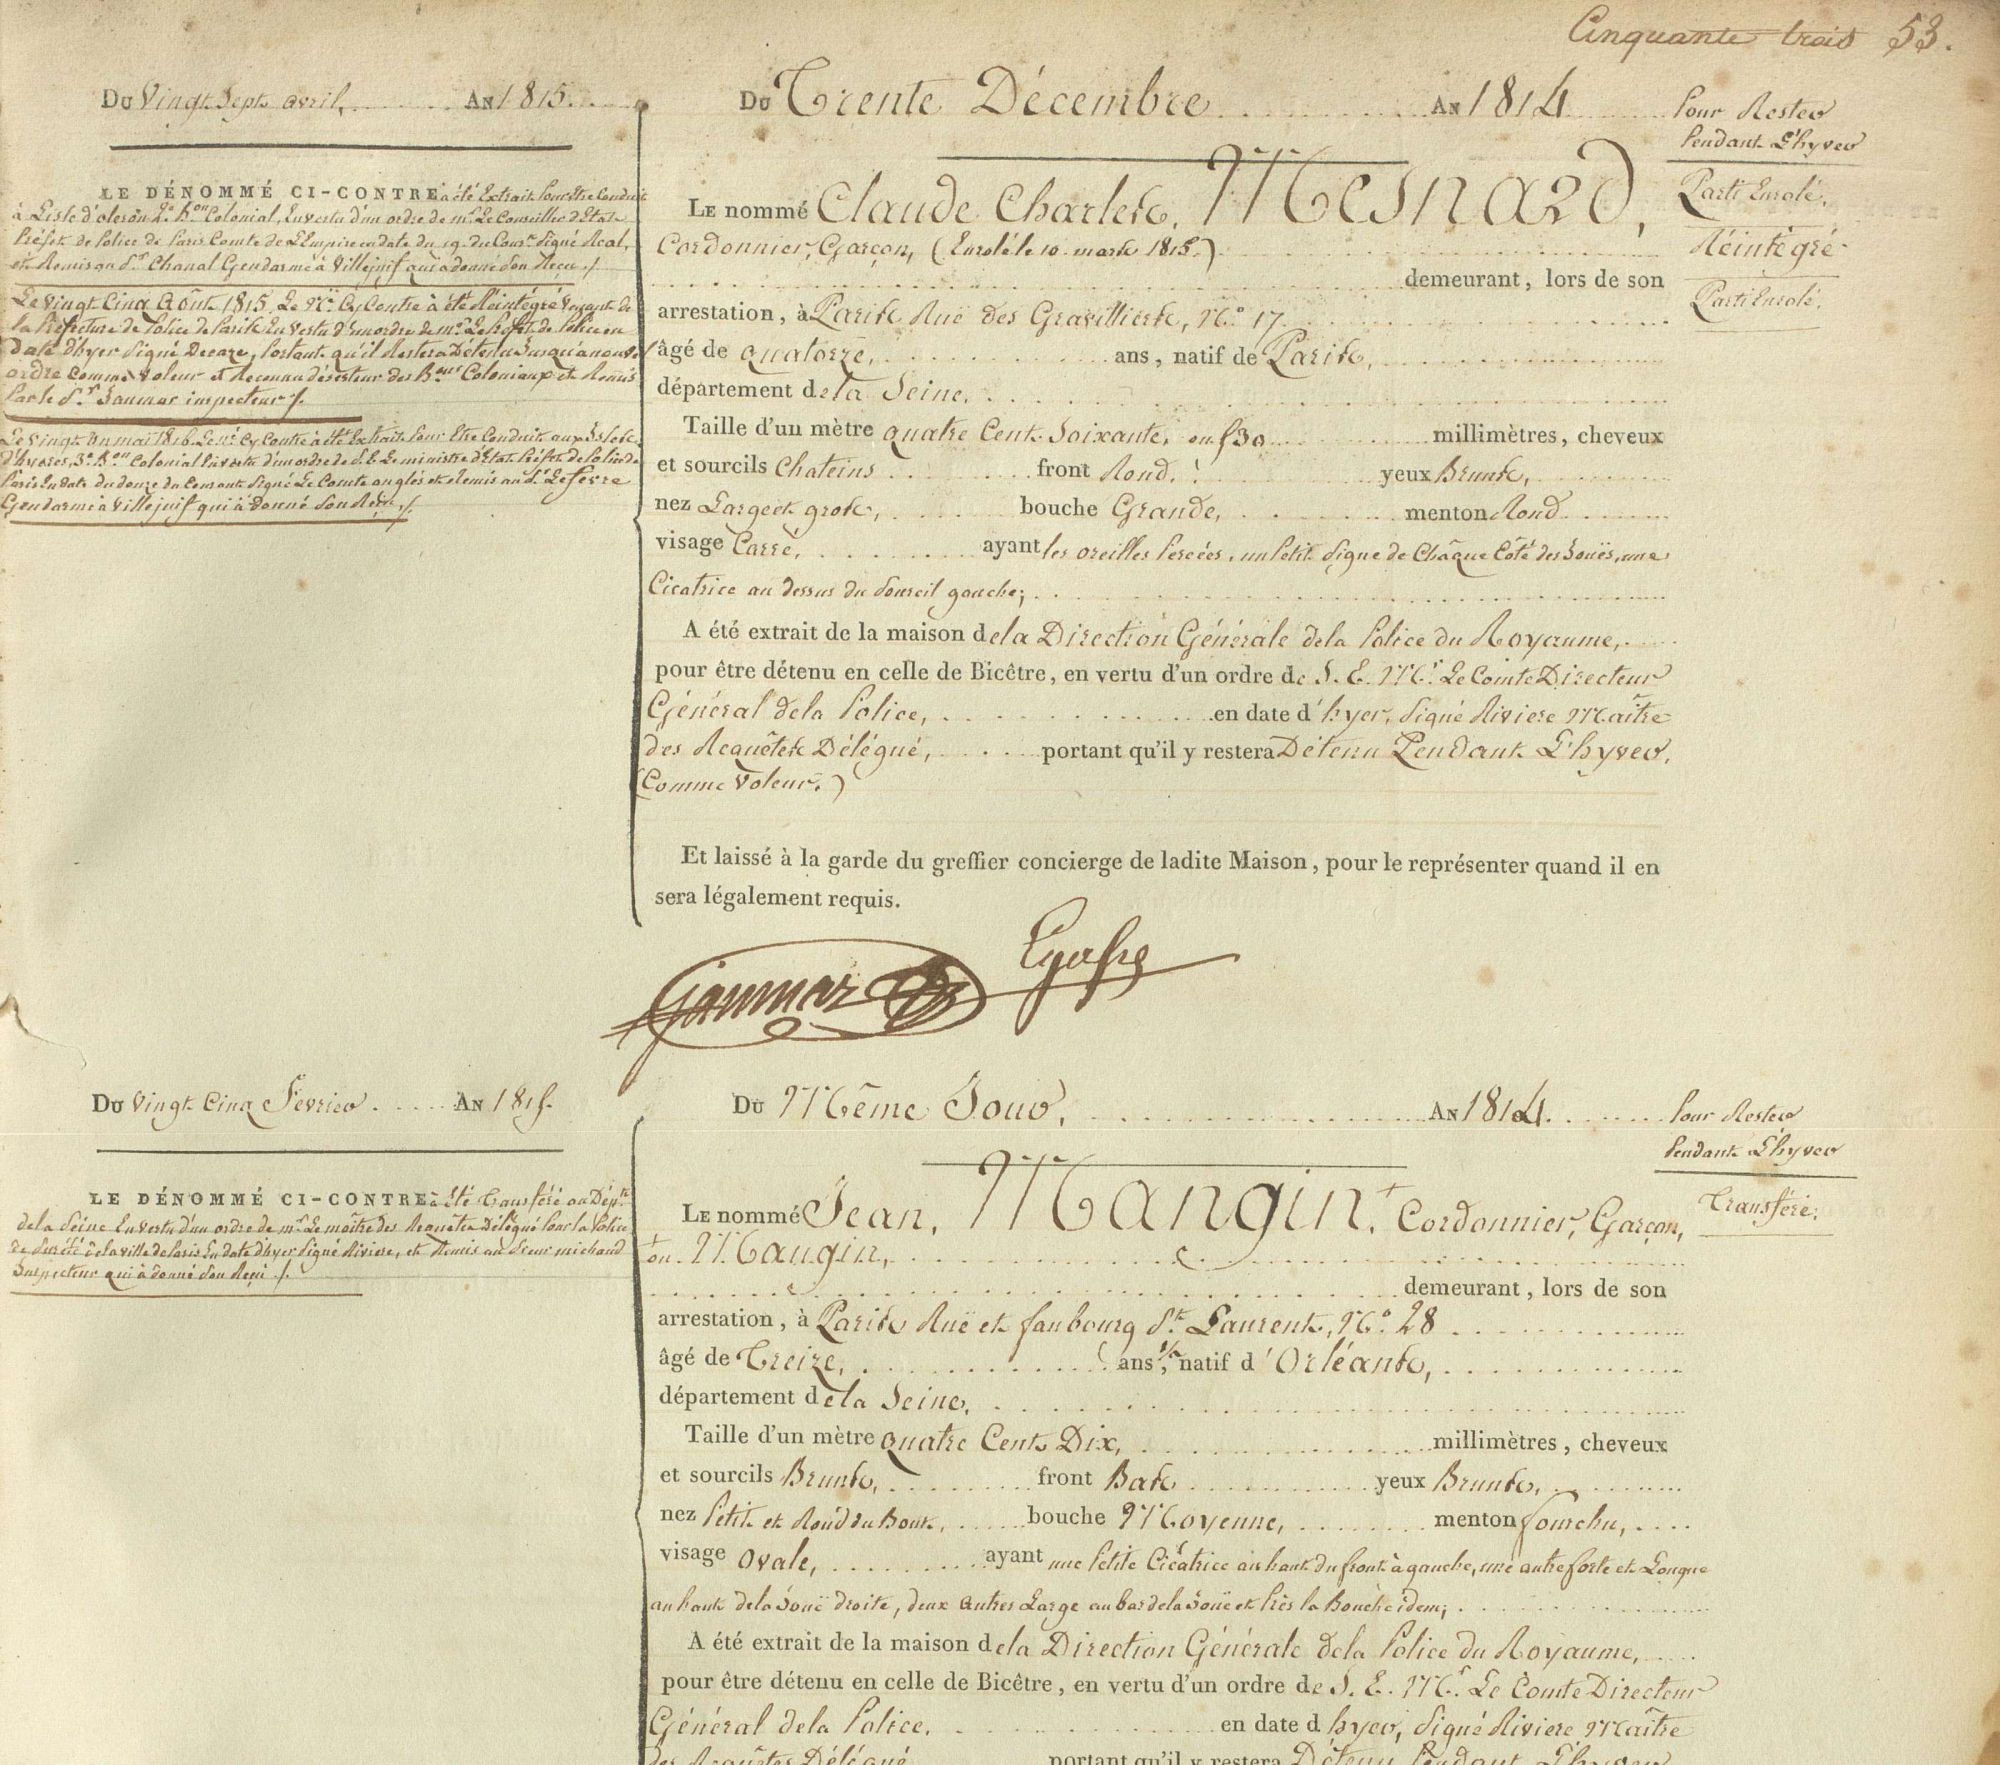 Cinquante trois 53.
Du Vingt Sept avril, AN 1815.
LE DÉNOMMÉ CI-CONTRE à été Extrait Pour Etre Conduit
à L'isle d'oleron 2e. Bon. Colonial, En vertu d'un ordre de mr. Le Conseiller d'Etat
Préfet de Police de Paris Comte de L'Empire en date du 19. du Cour. Signé Real,
et Remis au Sr. Chanal Gendarme à Villejuif qui à donné Son Reçu ./.
Le vingt Cinq Août 1815, Le Né. Cy Contre à été Réintégré Venant de
la Préfecture de Police de Paris En Vertu d'un ordre de mr. Le Préfet de Police en
Date d'hyer Signé Decaze, Portant qu'il Restera Détenu Jusqu'a nouvel
ordre Comme Voleur et Reconnu déserteur des Bons. Coloniaux et Remis
Par le Sr. Gaumar inspecteur ./.
Le vingt un mai 1816. Le né. Cy Contre à été Extrait Pour Etre Conduit aux Isles
d'hyeres, 3e. Bon. Colonial En vertu d'un ordre de S. E. Le ministre d'Etat Préfet de Police de
Paris En date du douze du Courant Signé Le Comte anglés et Remis au Sr. Lefevre
Gendarme à Villejuif qui à Donné Son Reçu ./.
Du Trente Décembre AN 1814
Pour Rester
Pendant L'hyver
Parti Enrolé.
Réintégré
Parti Enrolé.
LE nommé Claude Charles, Mesnard,
Cordonnier, Garçon, (Enrolé le 10 mars 1815.)
demeurant, lors de son
arrestation, à Paris Rue des Gravilliers, No. 17
âgé de quatorze, ans, natif de Paris,
département de la Seine,
Taille d'un mètre quatre Cent Soixante, ou 530 millimètres, cheveux
et sourcils Chateins front Rond, yeux Bruns,
nez Large et gros, bouche Grande, menton Rond
visage Carré, ayant les oreilles Percées, un Petit Signe de Chaque Côté des Joues, une
Cicatrice au dessus du Sourcil gauche;
A été extrait de la maison de la Direction Générale de la Police du Royaume,
pour être détenu en celle de Bicêtre, en vertu d'un ordre de S. E. Mr. Le Comte Directeur
Général de la Police, en date d'hyer, Signé Riviere Maître
des Requêtes Délégué, portant qu'il y restera Détenu Pendant L'hyver,
(Comme Voleur.)
Et laissé à la garde du greffier concierge de ladite Maison, pour le représenter quand il en
sera légalement requis.
Gaumar
Du Vingt Cinq Fevrier AN 1815.
LE DÉNOMMÉ CI-CONTRE à été Transféré au Dépôt
de la Seine En vertu d'un ordre de mr. Le maître des Requêtes Délégué Pour la Police
de Sureté de la ville de Paris En date d'hyer Signé Riviere, et Remis au Sieur michaud
Inspecteur qui à donné Son Reçu ./.
Du Même Jour, AN 1814.
Pour Rester
Pendant L'hyver
Transféré.
LE nommé Jean, Mangin, Cordonnier, Garçon,
ou Maugin,
demeurant, lors de son
arrestation, à Paris Rue et faubourg St. Laurent, No. 28
âgé de Treize, ans 1/2, natif d'Orléans,
département de la Seine,
Taille d'un mètre quatre Cent Dix, millimètres, cheveux
et sourcils Bruns, front Bas yeux Bruns,
nez Petit et Rond du Bout, bouche Moyenne, menton fourchu,
visage Ovale, ayant une Petite Cicatrice au haut du front à gauche, une autre forte et Longue
au haut de la Joue droite, deux autres Large au bas de la Joue et Près la Bouche idem;
A été extrait de la maison de la Direction Générale de la Police du Royaume,
pour être détenu en celle de Bicêtre, en vertu d'un ordre de S. E. Mr. Le Comte Directeur
Général de la Police, en date d'hyer, Signé Riviere Maître
des Requêtes Délégué portant qu'il y restera Détenu Pendant L'hyver